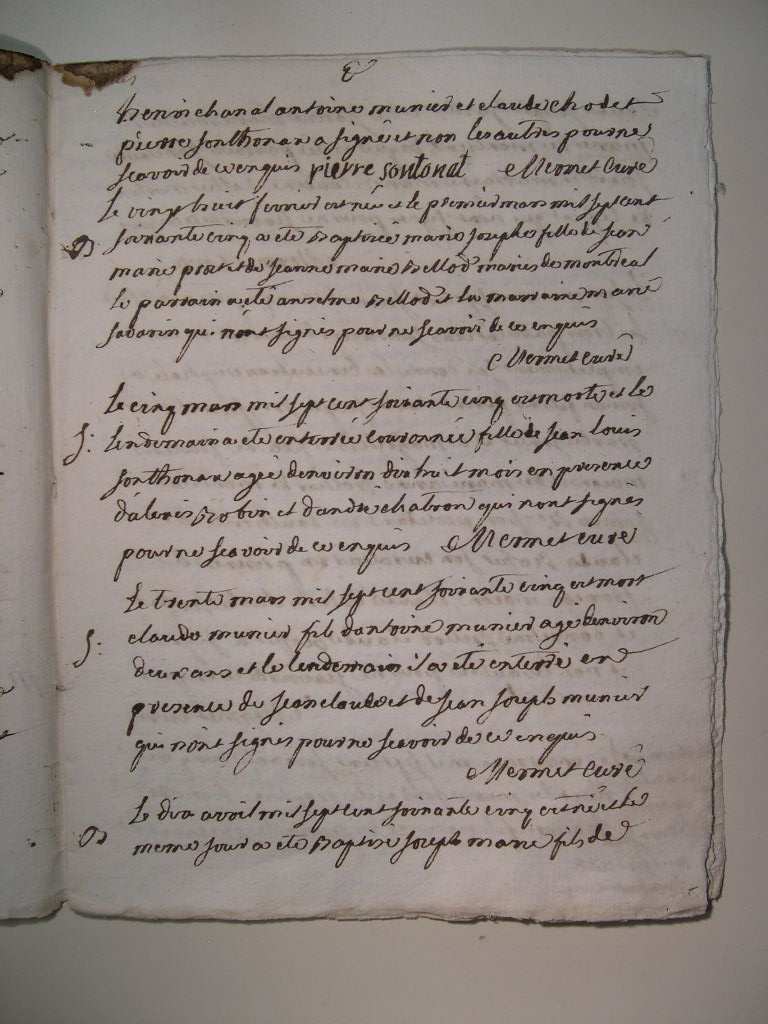 henri chanal antoine munier et claude chodet
pierre sonthonax a signé et non les autres pour ne
scavoir de ce enquis pierre sontonat Mermet curé
le vingt huit fevrier est née et le premier mars mil sept cent
B soixante cinq a eté Baptisée marie Josephe fille de Jean
marie prost et de Jeanne marie Bellod mariés de montreal
le parrain a eté anselme Bellod et la marraine marie
savarin qui n'ont signés pour ne scavoir de ce enquis
Mermet curé
le cinq mars mil sept cent soixante cinq est morte et le
S: lendemain a eté enterrée couronnée fille de Jean louis
sonthonax agée denviron dix huit mois en presence
d'alexis Robin et dandré chatron qui nont signés
pour ne scavoir de ce enquis Mermet curé
Le trente mars mil sept cent soixante cinq est mort
S: claude munier fils dantoine munier agé denviron
deux ans et le lendemain il a eté enterré en
presence de Jean claude et de Jean Joseph munier
qui n'ont signés pour ne scavoir de ce enquis
Mermet curé
B Le dix avril mil sept cent soixante cinq est né et le
meme jour a eté Baptisé Joseph marie fils de